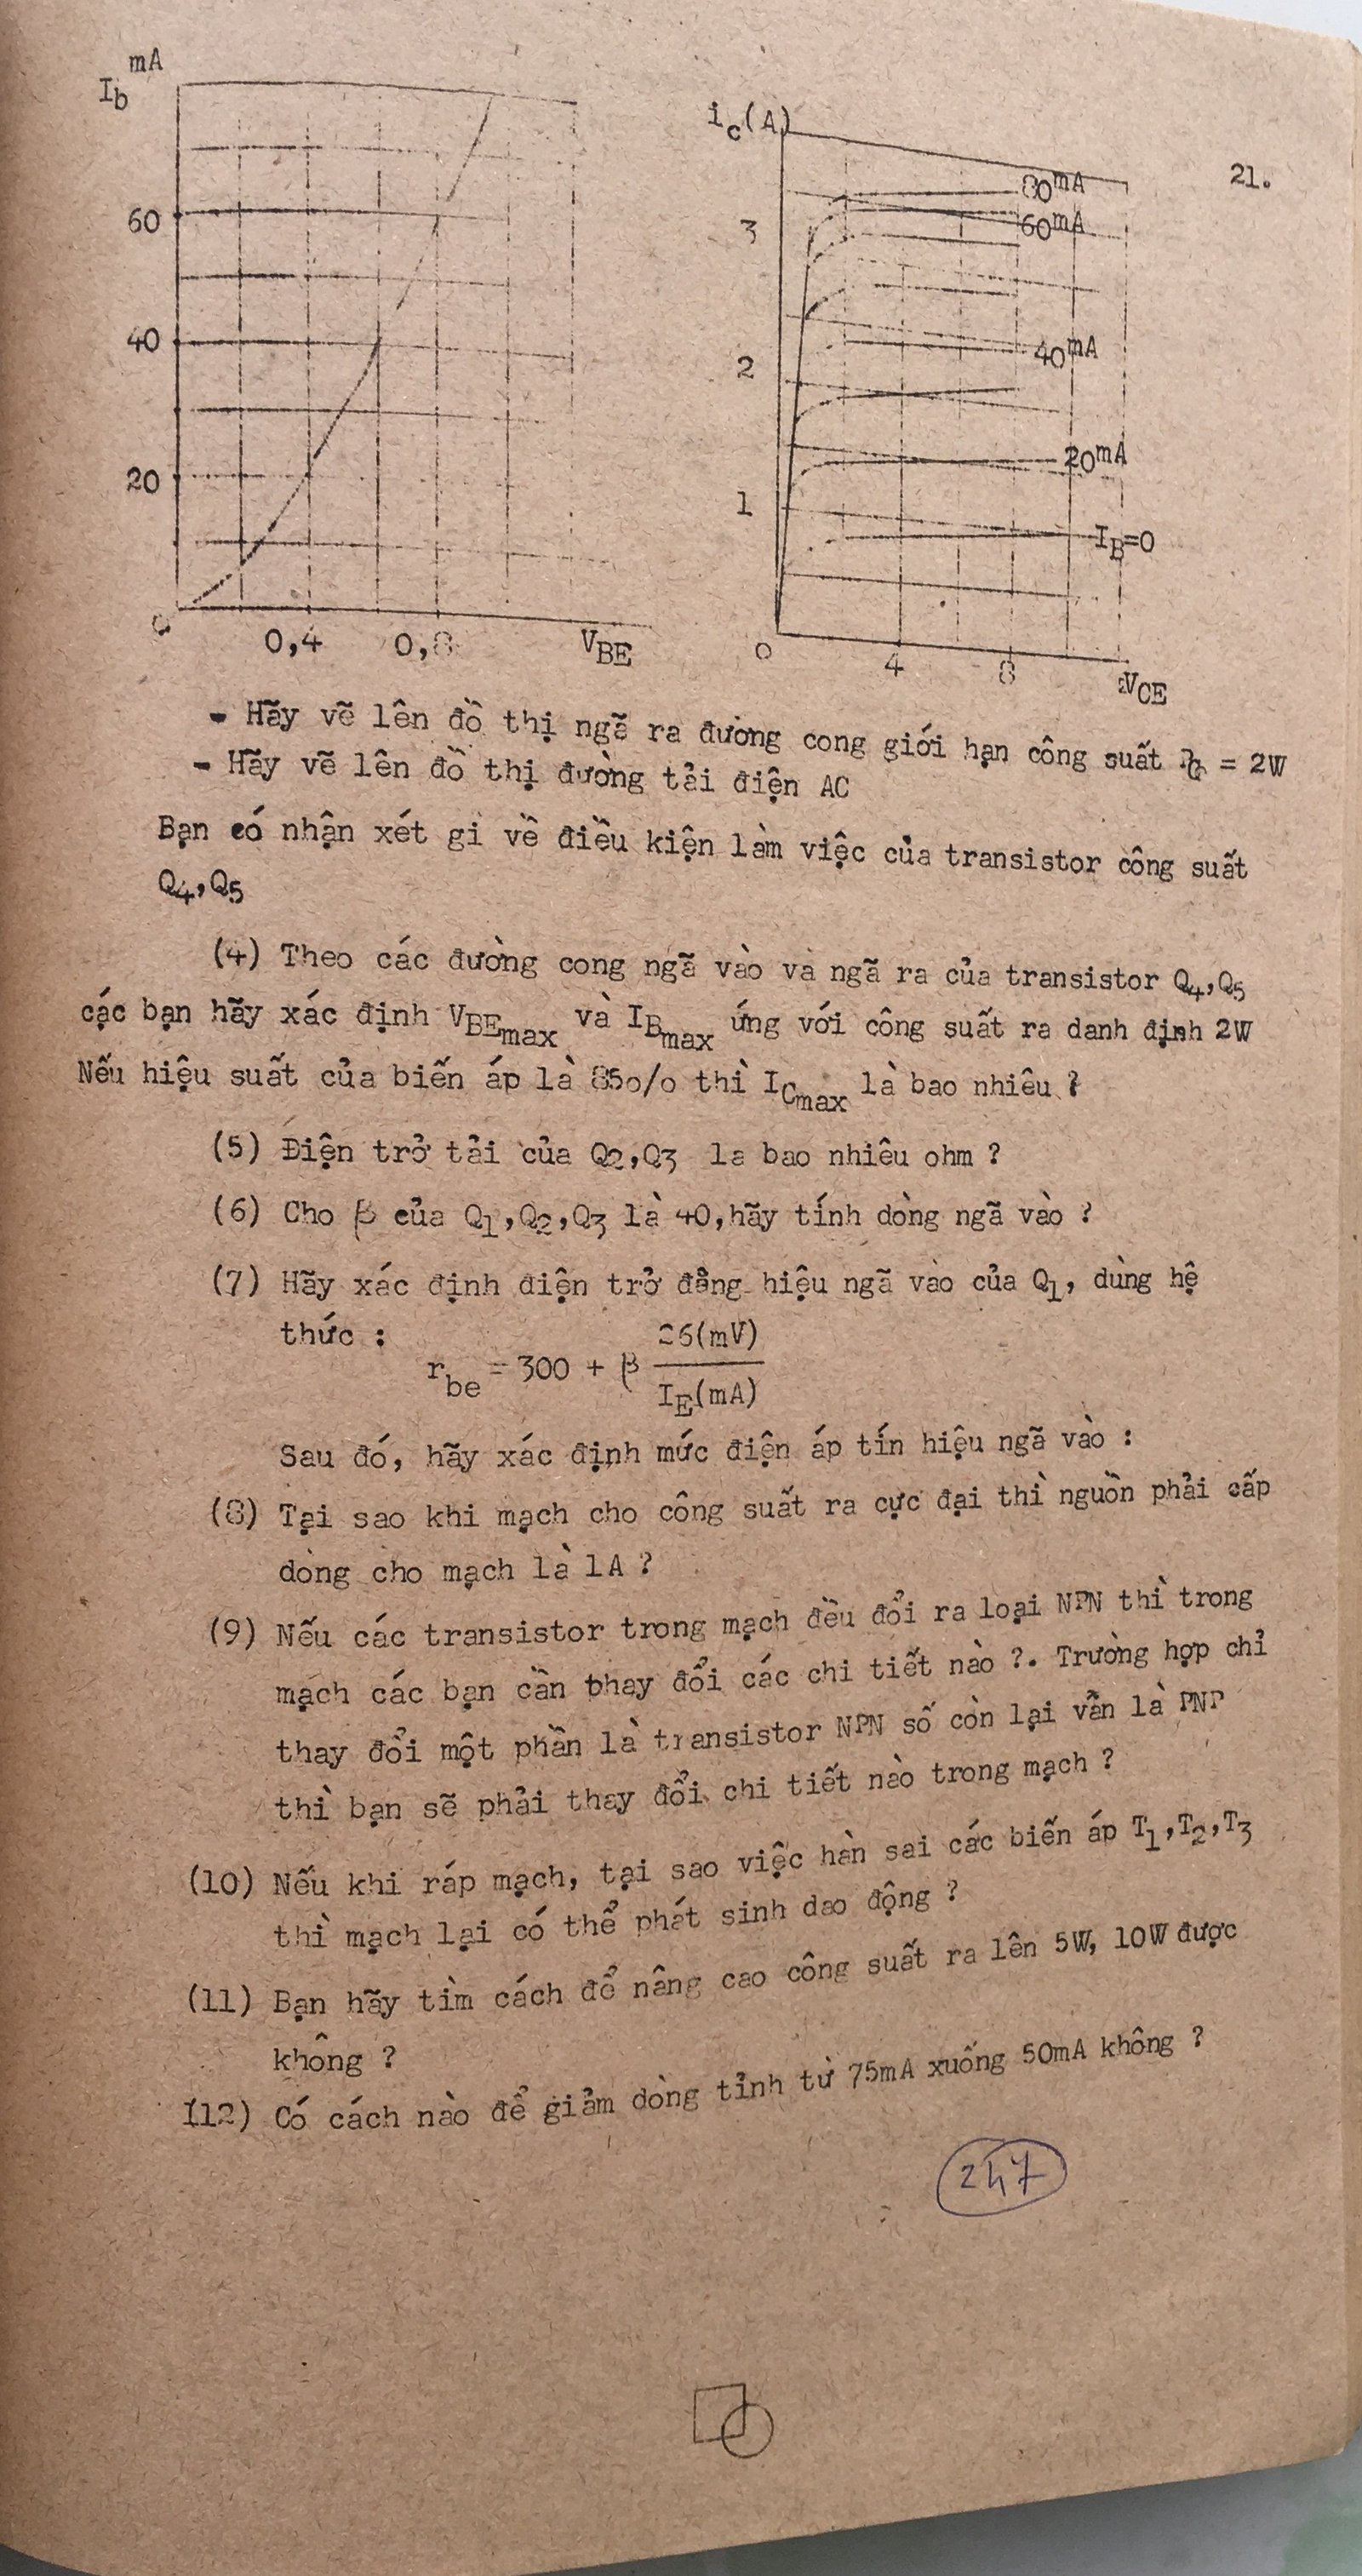 mA
Ib
60
40
20
0
0,4
0,8
VBE
ic(A)
21.
80mA
60mA
3
40mA
2
20mA
1
IB=0
0
4
8
VCE
- Hãy vẽ lên đồ thị ngã ra đường cong giới hạn công suất = 2W
- Hãy vẽ lên đồ thị đường tải điện AC
Bạn có nhận xét gì về điều kiện làm việc của transistor công suất
Q4,Q5
(4) Theo các đường cong ngã vào và ngã ra của transistor Q4,Q5
các bạn hãy xác định VBEmax và IBmax ứng với công suất ra danh định 2W
Nếu hiệu suất của biến áp là 85o/o thì ICmax là bao nhiêu ?
(5) Điện trở tải của Q2,Q3 là bao nhiêu ohm ?
(6) Cho β của Q1,Q2,Q3 là 40,hãy tính dòng ngã vào ?
(7) Hãy xác định điện trở đẳng hiệu ngã vào của Q1, dùng hệ
thức :
rbe = 300 + β 26(mV)
IE(mA)
Sau đó, hãy xác định mức điện áp tín hiệu ngã vào :
(8) Tại sao khi mạch cho công suất ra cực đại thì nguồn phải cấp
dòng cho mạch là 1A ?
(9) Nếu các transistor trong mạch đều đổi ra loại NPN thì trong
mạch các bạn cần thay đổi các chi tiết nào ?. Trường hợp chỉ
thay đổi một phần là transistor NPN số còn lại vẫn là PNP
thì bạn sẽ phải thay đổi chi tiết nào trong mạch ?
(10) Nếu khi ráp mạch, tại sao việc hàn sai các biến áp T1,T2,T3
thì mạch lại có thể phát sinh dao động ?
(11) Bạn hãy tìm cách để nâng cao công suất ra lên 5W, 10W được
không ?
(12) Có cách nào để giảm dòng tỉnh từ 75mA xuống 50mA không ?
247